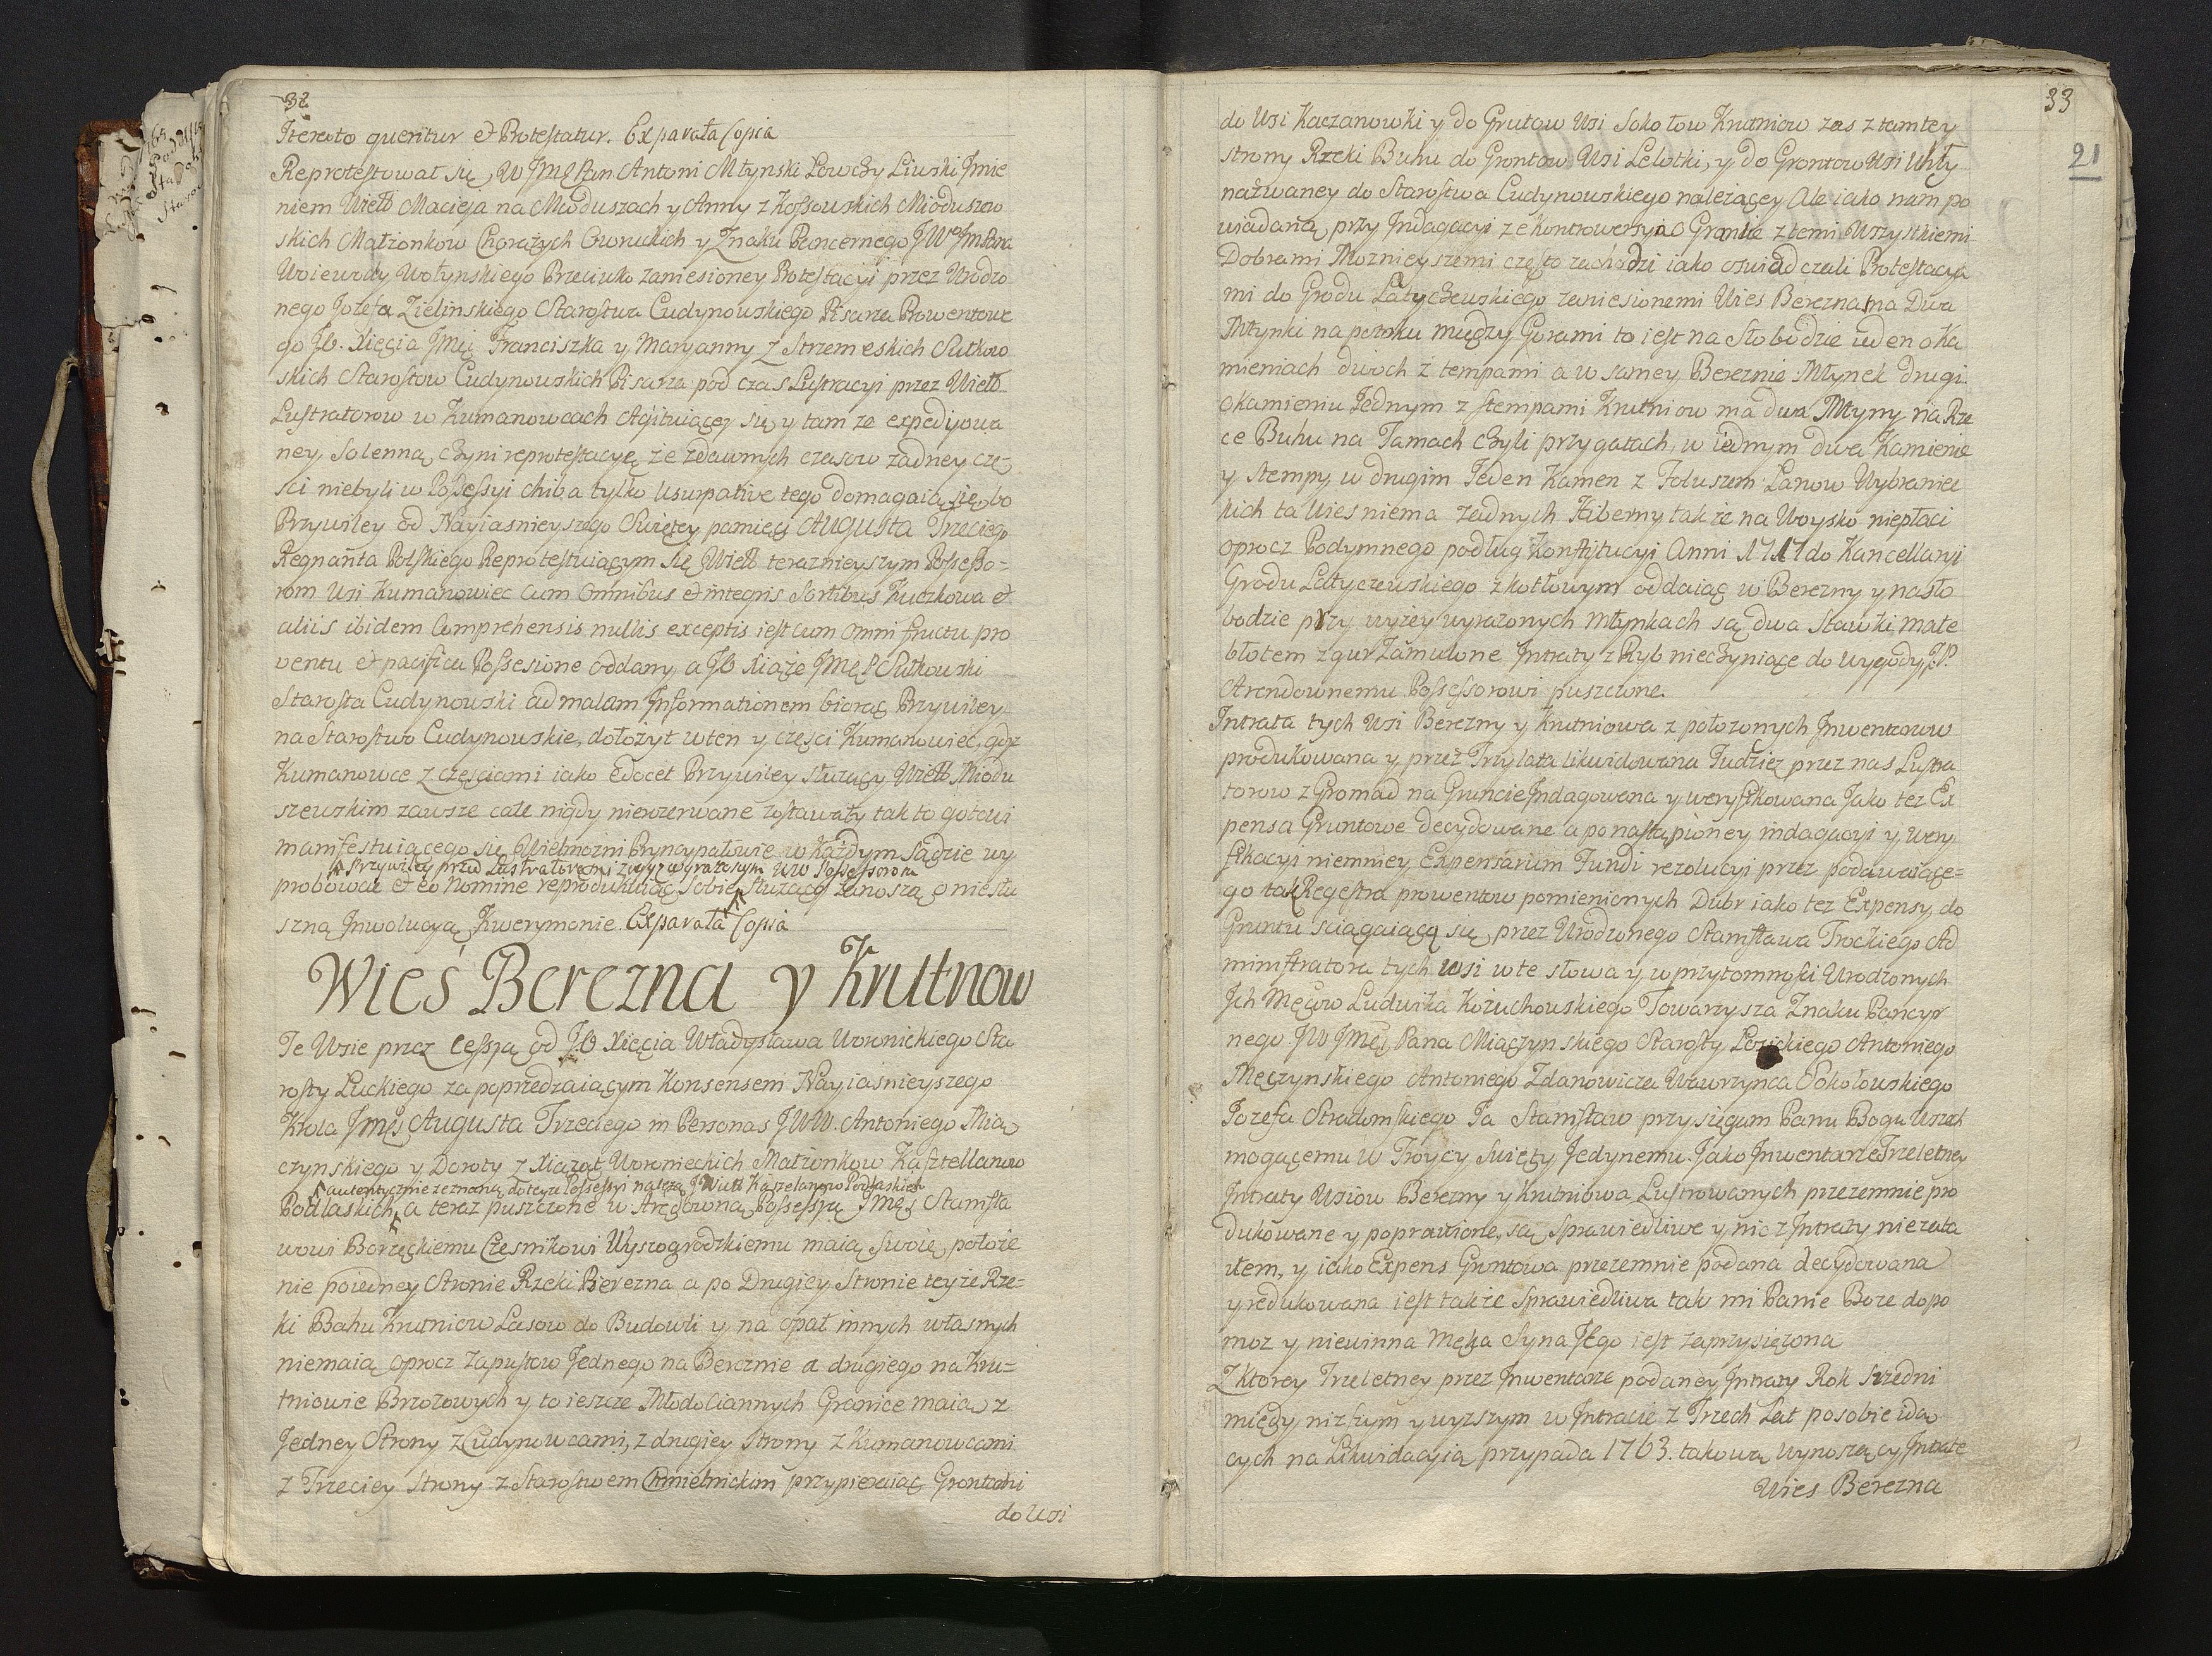 32
Itereto queritur et Protestatur. Ex parata Copia
Reprotestował się W JMSPan Antoni Młynski Łowczy Liwski Jmie
niem Wiell Macieja na Mioduszach y Anny z Kossowskich Mioduszow
skich Małżonkow Chorążych Owruckich y Znaku Pancernego JWo JmPana
Woiewody Wołynskiego Przeciwko zaniesioney Protestacyi przez Urodzo
nego Jozefa Zielinskiego Starostwa Cudynowskiego Pisarza Prowentowe
go JO. Xięcia Jmći Franciszka y Maryanny z Strzemeskich Sułkow
skich Starostow Cudynowskich Pisarza pod czas Lustracyi przez Wiell
Lustratorow w Kumanowcach Agituiącey się y tam ze expedyowa
ney Solenną czyni reprotestacyę, że zdawnych czasow żadney czę
ści niebyli w Possessyi chiba tylko Usurpative tego domagaią się bo
Przywiley od Nayiasnieyszego Swiętey pamięci Augusta Trzeciego
Regnanta Polskiego Reprotestuiącym się Wiell teraznieyszym Possesso=
rom Wsi Kumanowiec cum Omnibus et integris Sortibus Kuczkowa et
aliis ibidem Comprehensis nullis exceptis iest cum omni fructu pro
ventu et pacifica Possesione oddany, a JO Xiąże Jmć Sułkowski
Starosta Cudynowski ad malam Informationem biorąc Przywiley
na Starostwo Cudynowskie, dołożył wten y części Kumanowiec, gdyz
Kumanowce z częsciami iako edocet Przywiley służący Wiell Miodu
szewskim zawsze całe nigdy nierozerwane zostawały tak to gotowi
manifestuiącego się Wielmożni Pryncypałowie w każdym Sądzie wy
Przywiley przed Lustratorami zwyż wyrażonym WW Possessorom
probować et eo Nomine reprodukuiąc Sobie służący zanoszą o niesłu
szną Inwolucyą Kwerymonie. Ex parata Copia
Wieś Berezna y Krutnow
Te Wsie przez Cessyą od JO Xięcia Władysława Woronickiego Sta
rosty Łuckiego za poprzedzaiącym Konsensem Nayiasnieyszego
Krola Jmći Augusta Trzeciego in Personas JWW. Antoniego Mią
czynskiego y Doroty z Xiążąt Woronieckich Małżonkow Kasztellanow
autentycznie zeznaną, doteyże Possessyi należą JWiell Kasztelanow Podlaskich
Podlaskich, a teraz puszczone w Arędowną Possessyą Jmći Stanisła
wowi Borzęckiemu Cześnikowi Wyszogrodzkiemu maią swoie położe
nie poiedney Stronie Rzeki Berezna a po Drugiey Stronie teyże Rze=
ki Bohu Krutniow Lasow do Budowli y na opał innych własnych
niemaią oprocz Zapustow Jednego na Bereznie a drugiego na Kru=
tniowie Brzozowych y to ieszcze Młodociannych Granice maią z
Jedney Strony z Cudynowcami, z drugiey strony z Kumanowcami
z Trzeciey strony z Starostwem Chmielnickim przypieraiąc Grontami
do Wsi
33
21
do Wsi Kaczanowki y do Grutow Wsi Sokołow Krutniow zas z tamtey
strony Rzeki Buhu do Grontow Wsi Lelotki, y do Grontow Wsi Uhły
nazwaney do Starostwa Cudynowskiego należącey Ale iako nam po
wiadaną przy Indagacyi ze Kontrowersyia o Granie z temi Wszystkiemi
Dobrami Moznieyszemi często zachodzi iako oswiadczali Protestacya
mi do Grodu Latyczewskiego zaniesionemi Wies Berezna ma Dwa
Młynki na potoku między Gorami to iest na Słobodzie ieden o Ka
mieniach dwoch z tempami a w samey Bereznie Młynek drugi
okamieniu Jednym z stempami Krutniow ma dwa Młyny na Rze
ce Buhu na Tamach czyli przy gatach, w iednym dwa Kamienie
y stempy w drugim Jeden Kamen z Foluszem Łanow Wybraniec
kich ta Wies niema żadnych Hiberny także na Woysko niepłaci
oprocz Podymnego podług Konstytucyi Anni 1717 do Kancellaryi
Grodu Latyczewskiego z kotłowym oddaiąc w Berezny y nasło
bodzie przy wyżey wyrażonych młynkach są dwa Stawki małe
błotem z gur Zamulone Intraty z Ryb nieczyniące do wygody JP.
Arendownemu Possessorowi puszczone.
Intrata tych Wsi Berezny y Krutniowa z położonych Inwentarzow
produkowana y przez Trzy lata likwidowana Tudzież przez nas Lustra
torow z Gromad na Gruncie Indagowana y weryfikowana Jako tez Ex
pensa Gruntowe decydowane a ponastąpioney indagacyi y wery
fikacyi niemniey Expensarum Fundi rezolucyi przez podawaiące=
go tak Regestra prowentow pomienionych Dobr iako tez Expensy do
Gruntu sciągaiącą się przez Urodzonego Stanisława Trockiego Ad
ministratora tych Wsi wte słowa y w przytomnosci Urodzonych
Ich Mćiow Ludwika Kożuchowskiego Towarzysza Znaku Pancyr
nego JW Jmći Pana Miączynskiego Starosty Łosickiego Antoniego
Męczynskiego Antoniego Zdanowicza Wawrzynca Sokołowskiego
Jozefa Stradomskiego Ja Stanisław przysięgam Panu Bogu Wszech
mogącemu w Troycy Swięty Jedynemu. Jako Inwentarze Trzeletney
Intraty Wsiow Berezny y Krutniowa Lustrowanych przezemnie pro
dukowane y poprawione, są Sprawiedliwe y nic z Intraty niezata
iłem, y iako Expens Gruntowa przezemnie podana decydowana
y redukowana iest także Sprawiedliwa tak mi Panie Boże dopo
moz y niewinna Męka Syna JEgo iest zaprzysiężona
Z ktorey Trzeletney przez Inwentarze podaney Intraty Rok Srzedni
między nizszym y wyzszym w Intracie z Trzech Lat posobie idą
cych na Likwidacyią przypada 1763. takową Wynoszący Intratę
Wies Berezna